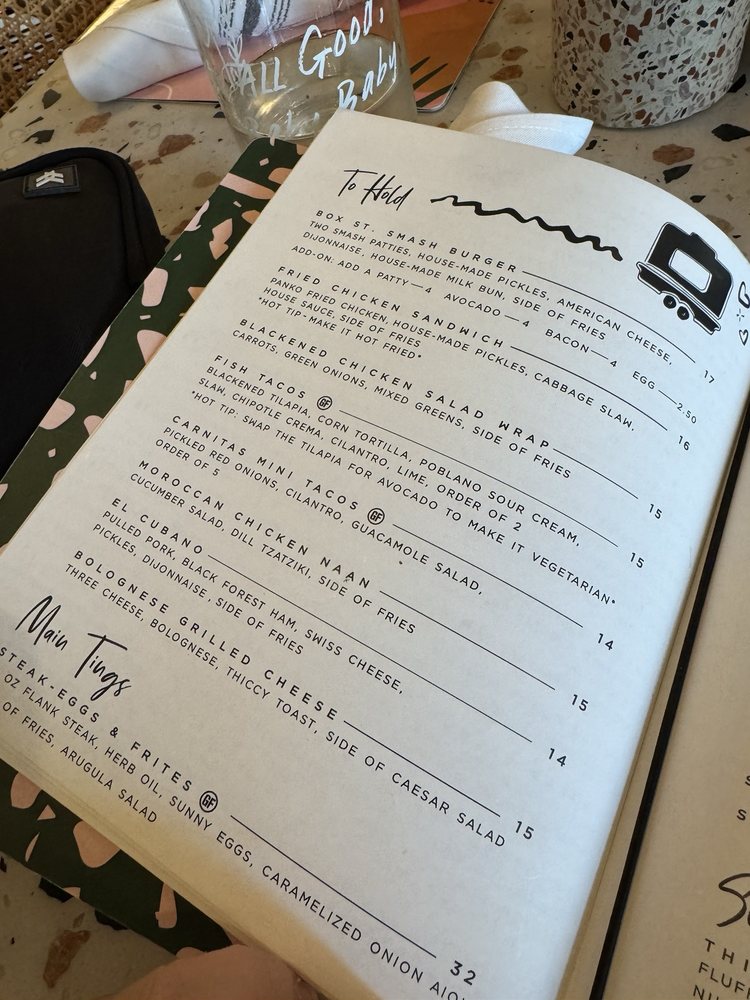 ALL Good,
Baby
To Hold
BOX ST. SMASH BURGER 17
TWO SMASH PATTIES, HOUSE-MADE PICKLES, AMERICAN CHEESE,
DIJONNAISE, HOUSE-MADE MILK BUN, SIDE OF FRIES
ADD-ON: ADD A PATTY—4 AVOCADO—4 BACON—4 EGG—2.50
FRIED CHICKEN SANDWICH 16
PANKO FRIED CHICKEN, HOUSE-MADE PICKLES, CABBAGE SLAW,
HOUSE SAUCE, SIDE OF FRIES
*HOT TIP - MAKE IT HOT FRIED*
BLACKENED CHICKEN SALAD WRAP 15
CARROTS, GREEN ONIONS, MIXED GREENS, SIDE OF FRIES
FISH TACOS GF 15
BLACKENED TILAPIA, CORN TORTILLA, POBLANO SOUR CREAM,
SLAW, CHIPOTLE CREMA, CILANTRO, LIME, ORDER OF 2
*HOT TIP: SWAP THE TILAPIA FOR AVOCADO TO MAKE IT VEGETARIAN*
CARNITAS MINI TACOS GF 14
PICKLED RED ONIONS, CILANTRO, GUACAMOLE SALAD,
ORDER OF 5
MOROCCAN CHICKEN NAAN 15
CUCUMBER SALAD, DILL TZATZIKI, SIDE OF FRIES
EL CUBANO 14
PULLED PORK, BLACK FOREST HAM, SWISS CHEESE,
PICKLES, DIJONNAISE, SIDE OF FRIES
BOLOGNESE GRILLED CHEESE 15
THREE CHEESE, BOLOGNESE, THICCY TOAST, SIDE OF CAESAR SALAD
Main Tings
STEAK-EGGS & FRITES GF 32
OZ FLANK STEAK, HERB OIL, SUNNY EGGS, CARAMELIZED ONION AIO
OF FRIES, ARUGULA SALAD
THI
FLUF